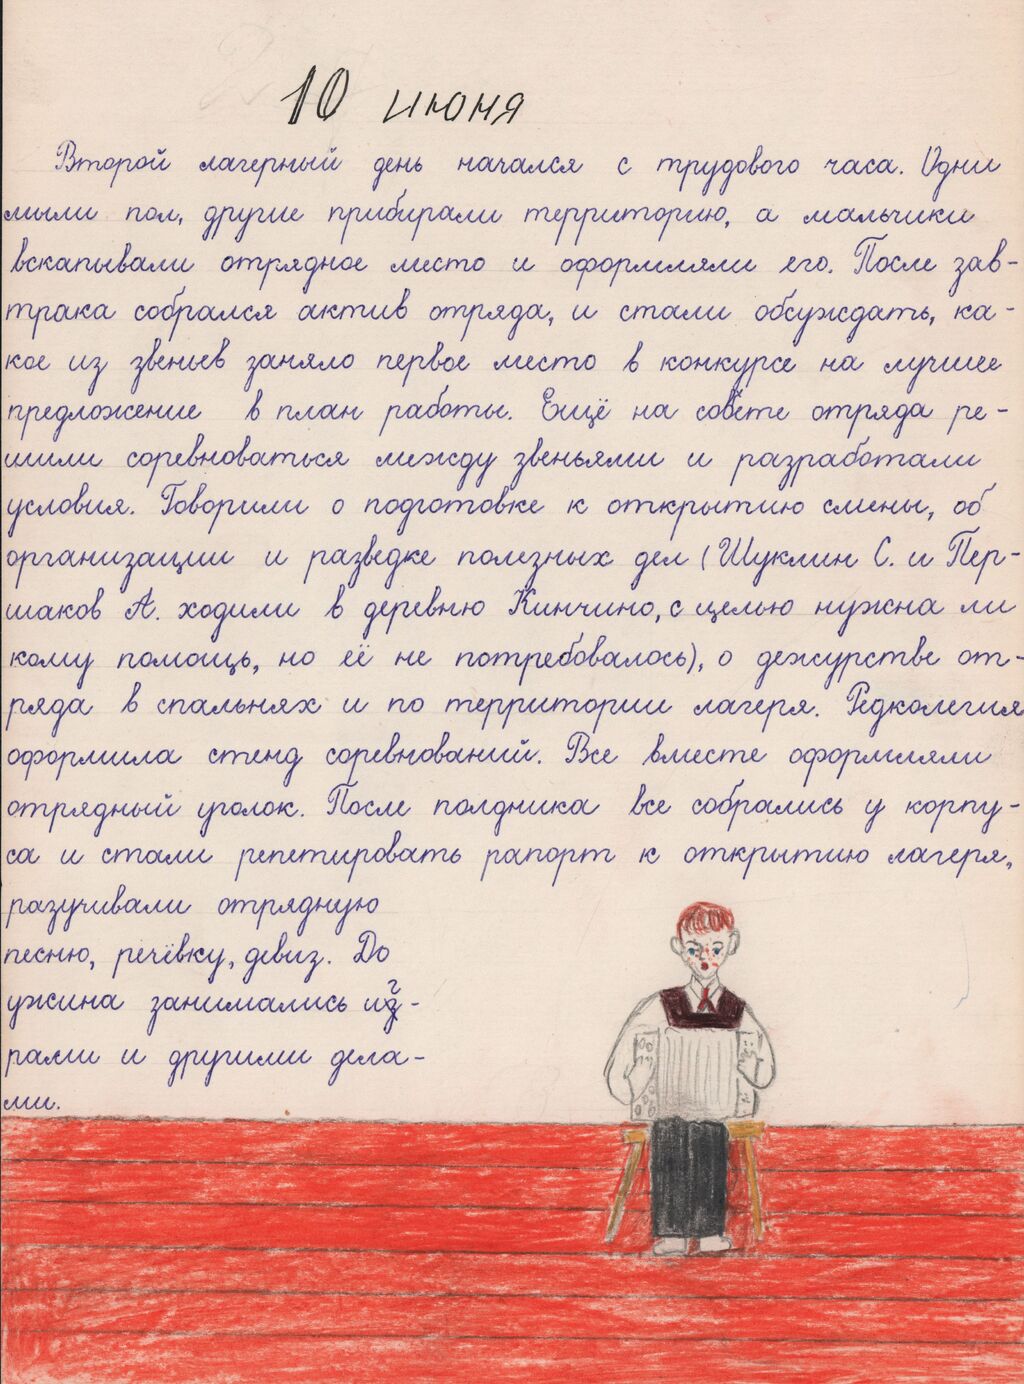 10 июня
Второй лагерный день начался с трудового часа. Одни
мыли пол, другие прибирали территорию, а мальчики
вскапывали отрядное место и оформляли его. После зав-
трака собрался актив отряда, и стали обсуждать, ка-
кое из звеньев заняло первое место в конкурсе на лучшее
предложение в план работы. Ещё на совете отряда ре-
шили соревноваться между звеньями и разработали
условия. Говорили о подготовке к открытию смены, об
организации и разведке полезных дел (Шуклин С. и Пер-
шаков А. ходили в деревню Кинчино, с целью нужна ли
кому помощь, но её не потребовалось), о дежурстве от-
ряда в спальнях и по территории лагеря. Редколегия
оформила стенд соревнований. Все вместе оформляли
отрядный уголок. После полдника все собрались у корпу-
са и стали репетировать рапорт к открытию лагеря,
разучивали отрядную
песню, речёвку, девиз. До
ужина занимались иг-
рами и другими дела-
ми.